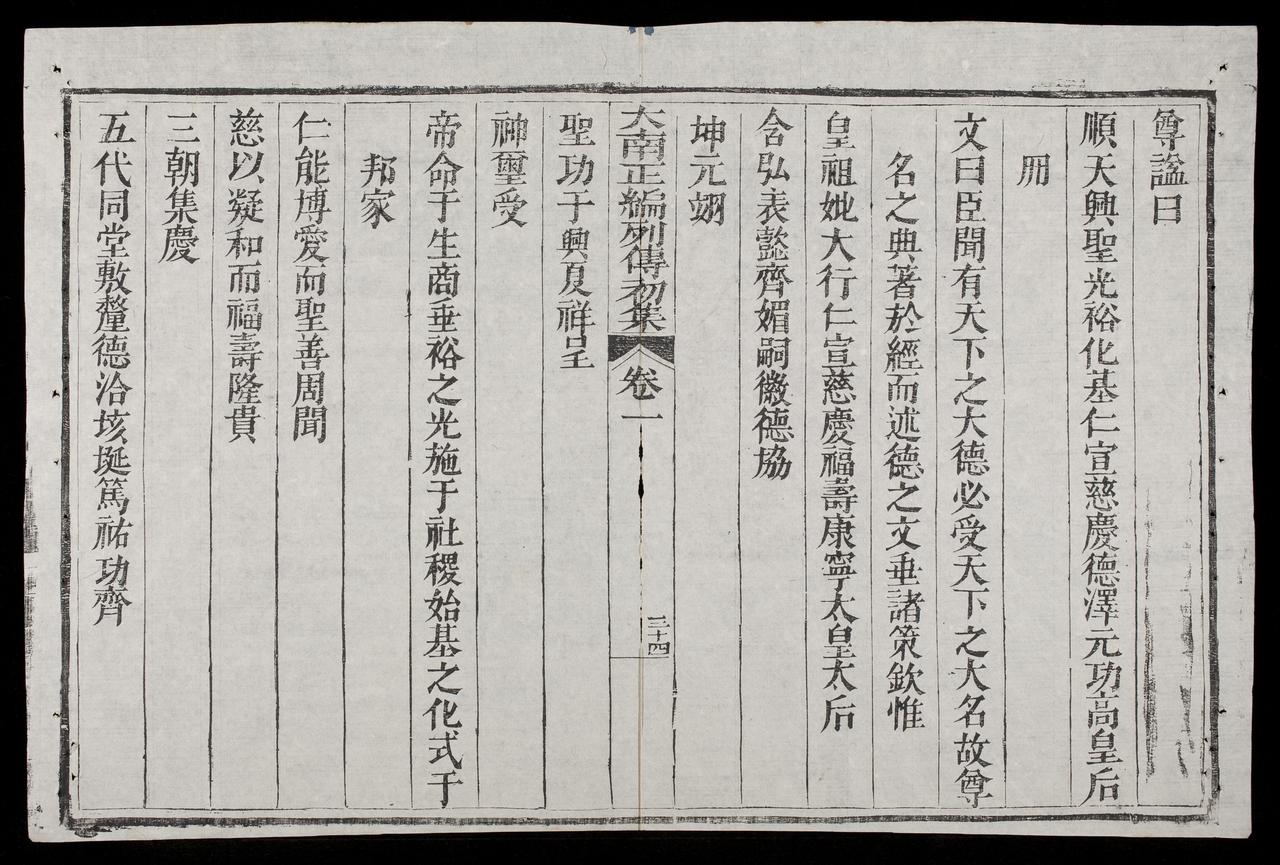 尊謚曰
順天興聖光裕化基仁宣慈慶德澤元功高皇后
冊
文曰臣聞有天下之大德必受天下之大名故尊
名之典著於經而述德之文垂諸策欽惟
皇祖妣大行仁宣慈慶福壽康寧太皇太后
含弘表懿齊媚嗣徽德協
坤元翊
大南正編列傳初集
卷一
三十四
聖功于興夏祥呈
神璽受
帝命于生商垂裕之光施于社稷始基之化式于
邦家
仁能博愛而聖善周聞
慈以凝和而福壽隆貴
三朝集慶
五代同堂敷釐德洽垓埏篤祐功齊